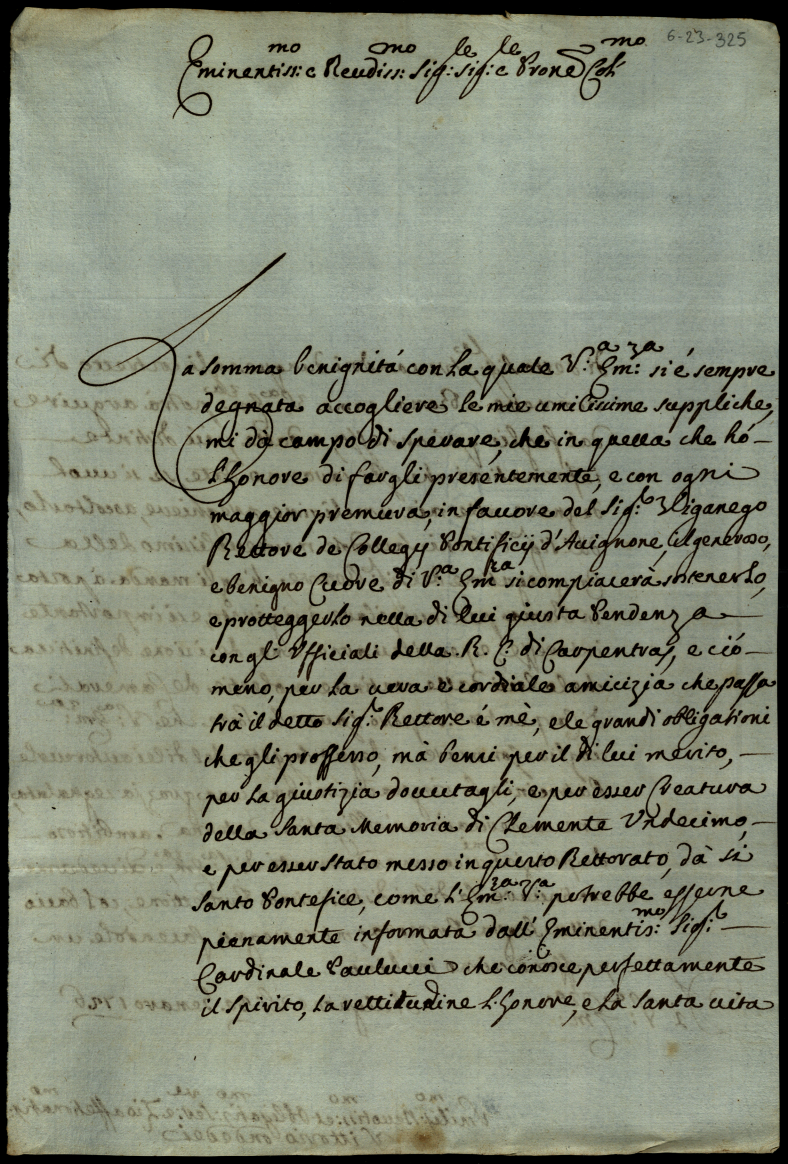 6-23-325
Eminentiss:mo e Reudiss:mo Sig:le Sig:le e Prone Col:mo
La somma benignitá con La quale V:a Em:za si é sempre
degnata accogliere le mie umilissime suppliche,
mi dà campo di sperare, che in quella che hó
L'honore di fargli presentemente, e con ogni
maggior premura, in fauore del Sig:r Viganego
Rettore de Collegij Pontificij d'Auignone, il generoso,
e benigno Cuore di V:a Em:za si compiacerà sostenerlo,
e protteggerlo nella di lui giusta Pendenza
con gli Vfficiali della R. C. di Carpentras, e ció
meno, per La uera e cordiale amicizia che passa
trà il detto Sig:r Rettore é mè, e le grandi obligationi
che gli proffesso, mà bensi per il di lui merito,
per La giustizia douutagli, e per esser Creatura
della Santa Memoria di Clemente Vndecimo,
e per esser stato messo in questo Rettorato, dà si
Santo Pontefice, come l'Em:za V:a potrebbe esserne
pienamente informata dall' Eminentis:mo Sig:r
Cardinale Paulucci che conosce perfettamente
il Spirito, La rettitudine L'honore, e La Santa uita